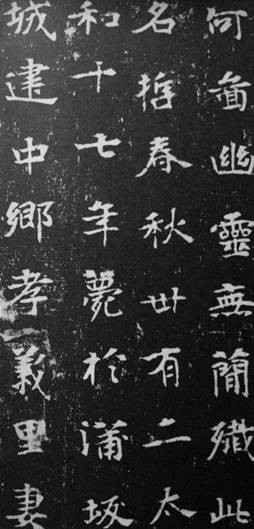 何啚幽靈無簡殲此
名哲春秋卌有二太
和十七年薨於蒲坂
城建中鄉孝義里妻